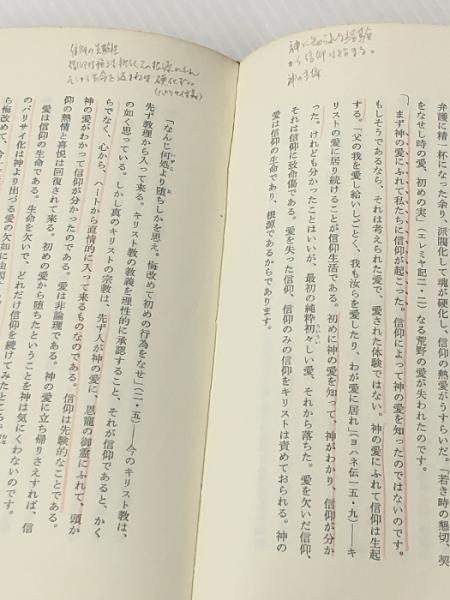 神に知られる経験
から信仰が始まる。
弁護に精一杯になった余り、派閥化して魂が硬化し、信仰の熱愛がうすらいだ。「若き時の懇切、契
をなせし時の愛、初めの実」（エレミヤ記二・二）なる荒野の愛が失われたのです。
まず神の愛にふれて私たちに信仰が起こった。信仰によって神の愛を知ったのではないのです。
もしそうであるなら、それは考えられた愛で、愛された体験ではない。神の愛にふれて信仰は生起
する。「父の我を愛し給いしごとく、我も汝らを愛したり、わが愛に居れ」（ヨハネ伝一五・九）――キ
リストの愛に居り続けることが信仰生活である。初めに神の愛を知って、神がわかり、信仰が分か
った。けれども分かったことはいいが、最初の純粋初々しい愛、それから落ちた。愛を欠いだ信仰、
それは信仰に致命傷である。愛を失った信仰、信仰のみの信仰をキリストは責めておられる。神の
愛は信仰の生命であり、根源であるからであります。
信仰の
「なんじ何処より堕ちしかを思え。悔改めて初めの行為をなせ」（二・五）――今のキリスト教は、
先ず教理から入って来る。キリスト教の教義を理性的に承認すること、それが信仰であると、かく
の如く思っている。しかし真のキリストの宗教は、先ず人が神の愛に、恩寵の御霊にふれて、頭か
らでなく、心から、ハートから直情的に入って来るものなのである。信仰は先験的なことである。
神の愛がわかって信仰が分かったのである。愛は非論理である。神の愛に立ち帰りさえすれば、信
仰の熱情と喜悦は回復されて来る。初めの愛から堕ちたということを神は気にくわないのです。
愛は信仰の生命である。生命を欠いで、どれだけ信仰を続けてみたところ
のパリサイ化は神より出づる愛の欠如に
ら悔改めて、今